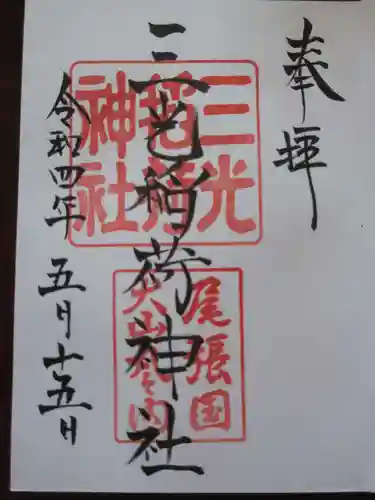 奉拝
三光稲荷神社
三光
稲荷
神社
尾張国
犬山城内
令和四年
五月十五日